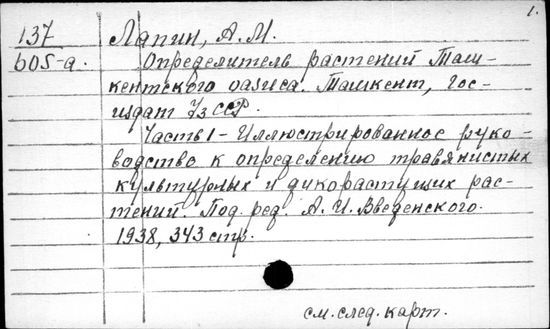 1.
137 Лапин, А.М.
605-а. Определитель растений Таш-
кентского оазиса. Ташкент, Гос-
издат УзССР.
Часть 1 - Иллюстрированное руко-
водство к определению травянистых
культурных и дикорастущих рас-
тений. Под. ред. А.И. Введенского.
1938, 343 стр.
см. след. карт.